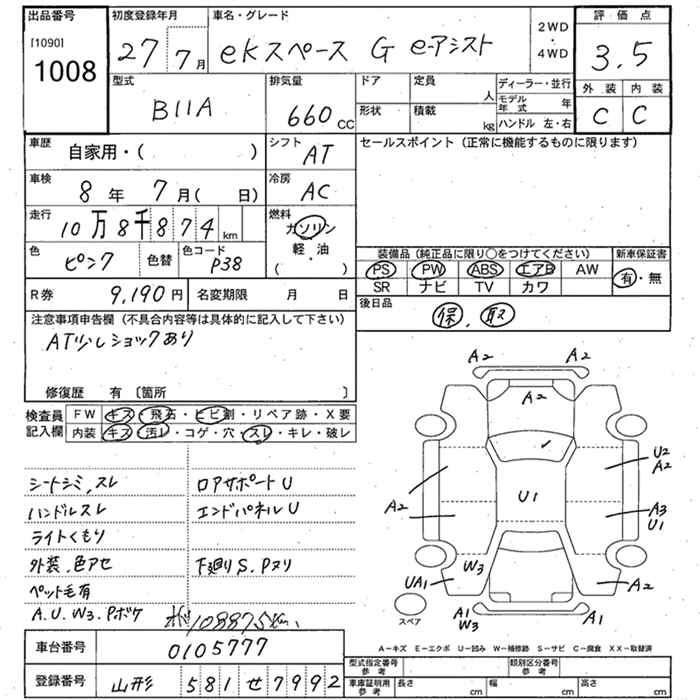 出品番号 初度登録年月 車名・グレード 2WD・4WD 評価点
[1090]
1008 27 7月 ekスペース G e-アシスト 3.5
型式 排気量 ドア 定員 人 ディーラー・並行 外装 内装
B11A 660cc 形状 積載 kg モデル年式 年 C C
ハンドル 左・右
車歴 自家用・( ) シフト AT セールスポイント (正常に機能するものに限ります)
車検 8年 7月( 日) 冷房 AC
走行 10万8千874km 燃料 ガソリン 軽・油 ( )
色 ピンク 色替 色コード P38
装備品 (純正品に限り〇をつけてください) 新車保証書
PS PW ABS エアB AW 有・無
SR ナビ TV カワ
R券 9,190円 名変期限 月 日 後日品
保、取
注意事項申告欄 (不具合内容等は具体的に記入して下さい)
AT少しショックあり
修復歴 有 〔箇所 〕
検査員記入欄 FW キズ・飛石・ヒビ割・リペア跡・X要
内装 キズ・汚レ・コゲ・穴・スレ・キレ・破レ
シートシミ、スレ ロアサポートU
ハンドルスレ エンドパネルU
ライトくもり
外装、色アセ 下廻りS、Pヌリ
ペット毛有
A、U、W3、Pボケ
108875km、
A2 A2
A2
U2
A2
A2 U1 A3
U1
W3
UA1 A2
スペア A1
W3 A1
A−キズ E−エクボ U−凹み W−補修跡 S−サビ C−腐食 XX−取替済
車台番号 0105777
登録番号 山形 581 せ 7992
型式指定番号 参考 類別区分番号 参考
車庫証明用 参考 長さ cm 幅 cm 高さ cm